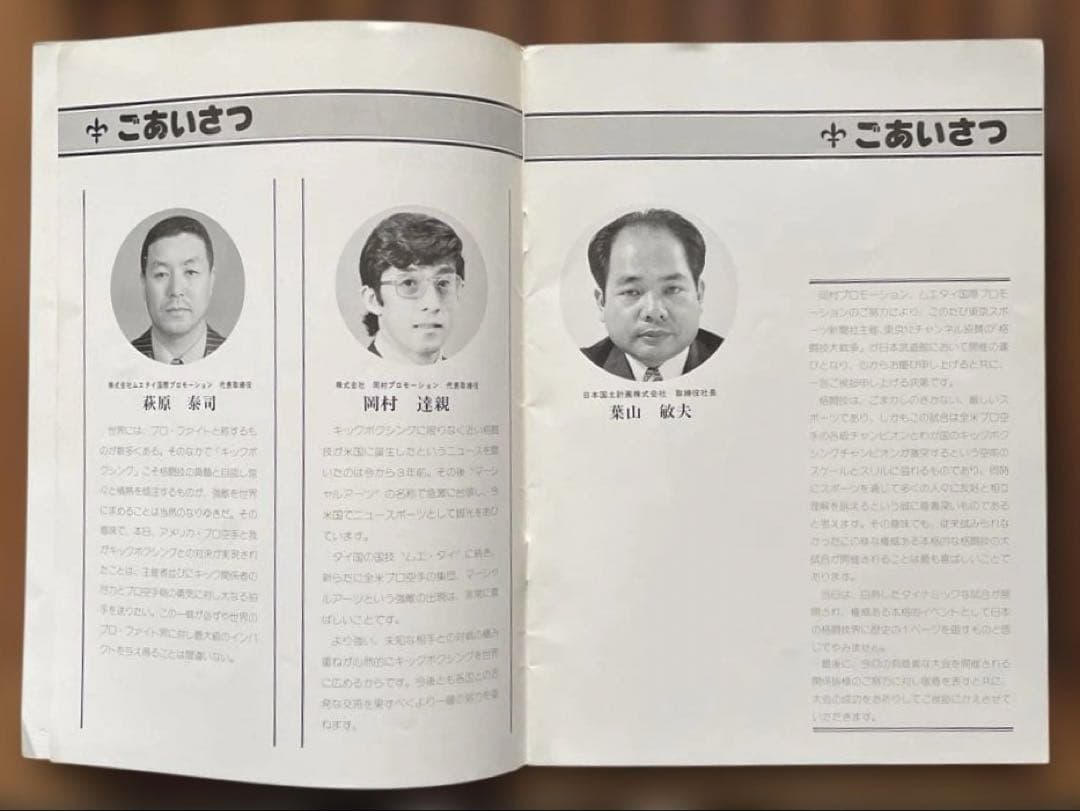 ごあいさつ
株式会社ムエタイ国際プロモーション 代表取締役
萩原 泰司
世界には、プロ・ファイトと称するも
のが数多くある。そのなかで「キックボ
クシング」こそ格闘技の真髄と自認し常
々と情熱を傾注するものが、強敵を世界
に求めることは当然のなりゆきだ。その
意味で、本日、アメリカ・プロ空手と我
がキックボクシングとの対決が実現され
たことは、主催者並びにキック関係者の
努力とプロ空手側の勇気に対し大なる拍
手を送りたい。この一戦が必ずや世界の
プロ・ファイト界に対し最大級のインパ
クトを与え得ることは間違いない。
株式会社 岡村プロモーション 代表取締役
岡村 達親
キックボクシングに限りなく近い格闘
技が米国に誕生したというニュースを聞
いたのは今から3年前。その後“マーシ
ャルアーツ”の名称で急激に台頭し、今
米国でニュースポーツとして脚光をあび
ています。
タイ国の国技“ムエ・タイ”に続き、
新らたに全米プロ空手の集団、マーシャ
ルアーツという強敵の出現は、非常に喜
ばしいことです。
より強い、未知な相手との対戦の積み
重ねが必然的にキックボクシングを世界
に広めるからです。今後とも各国との活
発な交流を果すべくより一層の努力を重
ねます。
ごあいさつ
日本国土計画株式会社 取締役社長
葉山 敏夫
岡村プロモーション、ムエタイ国際プロモ
ーションのご努力により、このたび東京スポ
ーツ新聞社主催、東京12チャンネル協賛の「格
闘技大戦争」が日本武道館において開催の運
びとなり、心からお慶び申し上げると共に、
一言ご挨拶申し上げる次第です。
格闘技は、ごまかしのきかない、厳しいス
ポーツであり、しかもこの試合は全米プロ空
手の各級チャンピオンとわが国のキックボク
シングチャンピオンが激突するという空前の
スケールとスリルに溢れるものであり、同時
にスポーツを通じて多くの人々に友好と相互
理解を訴えるという誠に意義深いものである
と思えます。その意味でも、従来試みられな
かったこの様な権威ある本格的な格闘技の大
試合が開催されることは最も喜ばしいことで
あります。
当日は、白熱したダイナミックな試合が展
開され、権威ある本格的イベントとして日本
の格闘技界に歴史の1ページを画すものと信
じてやみません。
最後に、今回の有意義な大会を開催される
関係皆様のご努力に対し敬意を表すと共に、
大会の成功をお祈りしてご挨拶にかえさせて
いただきます。